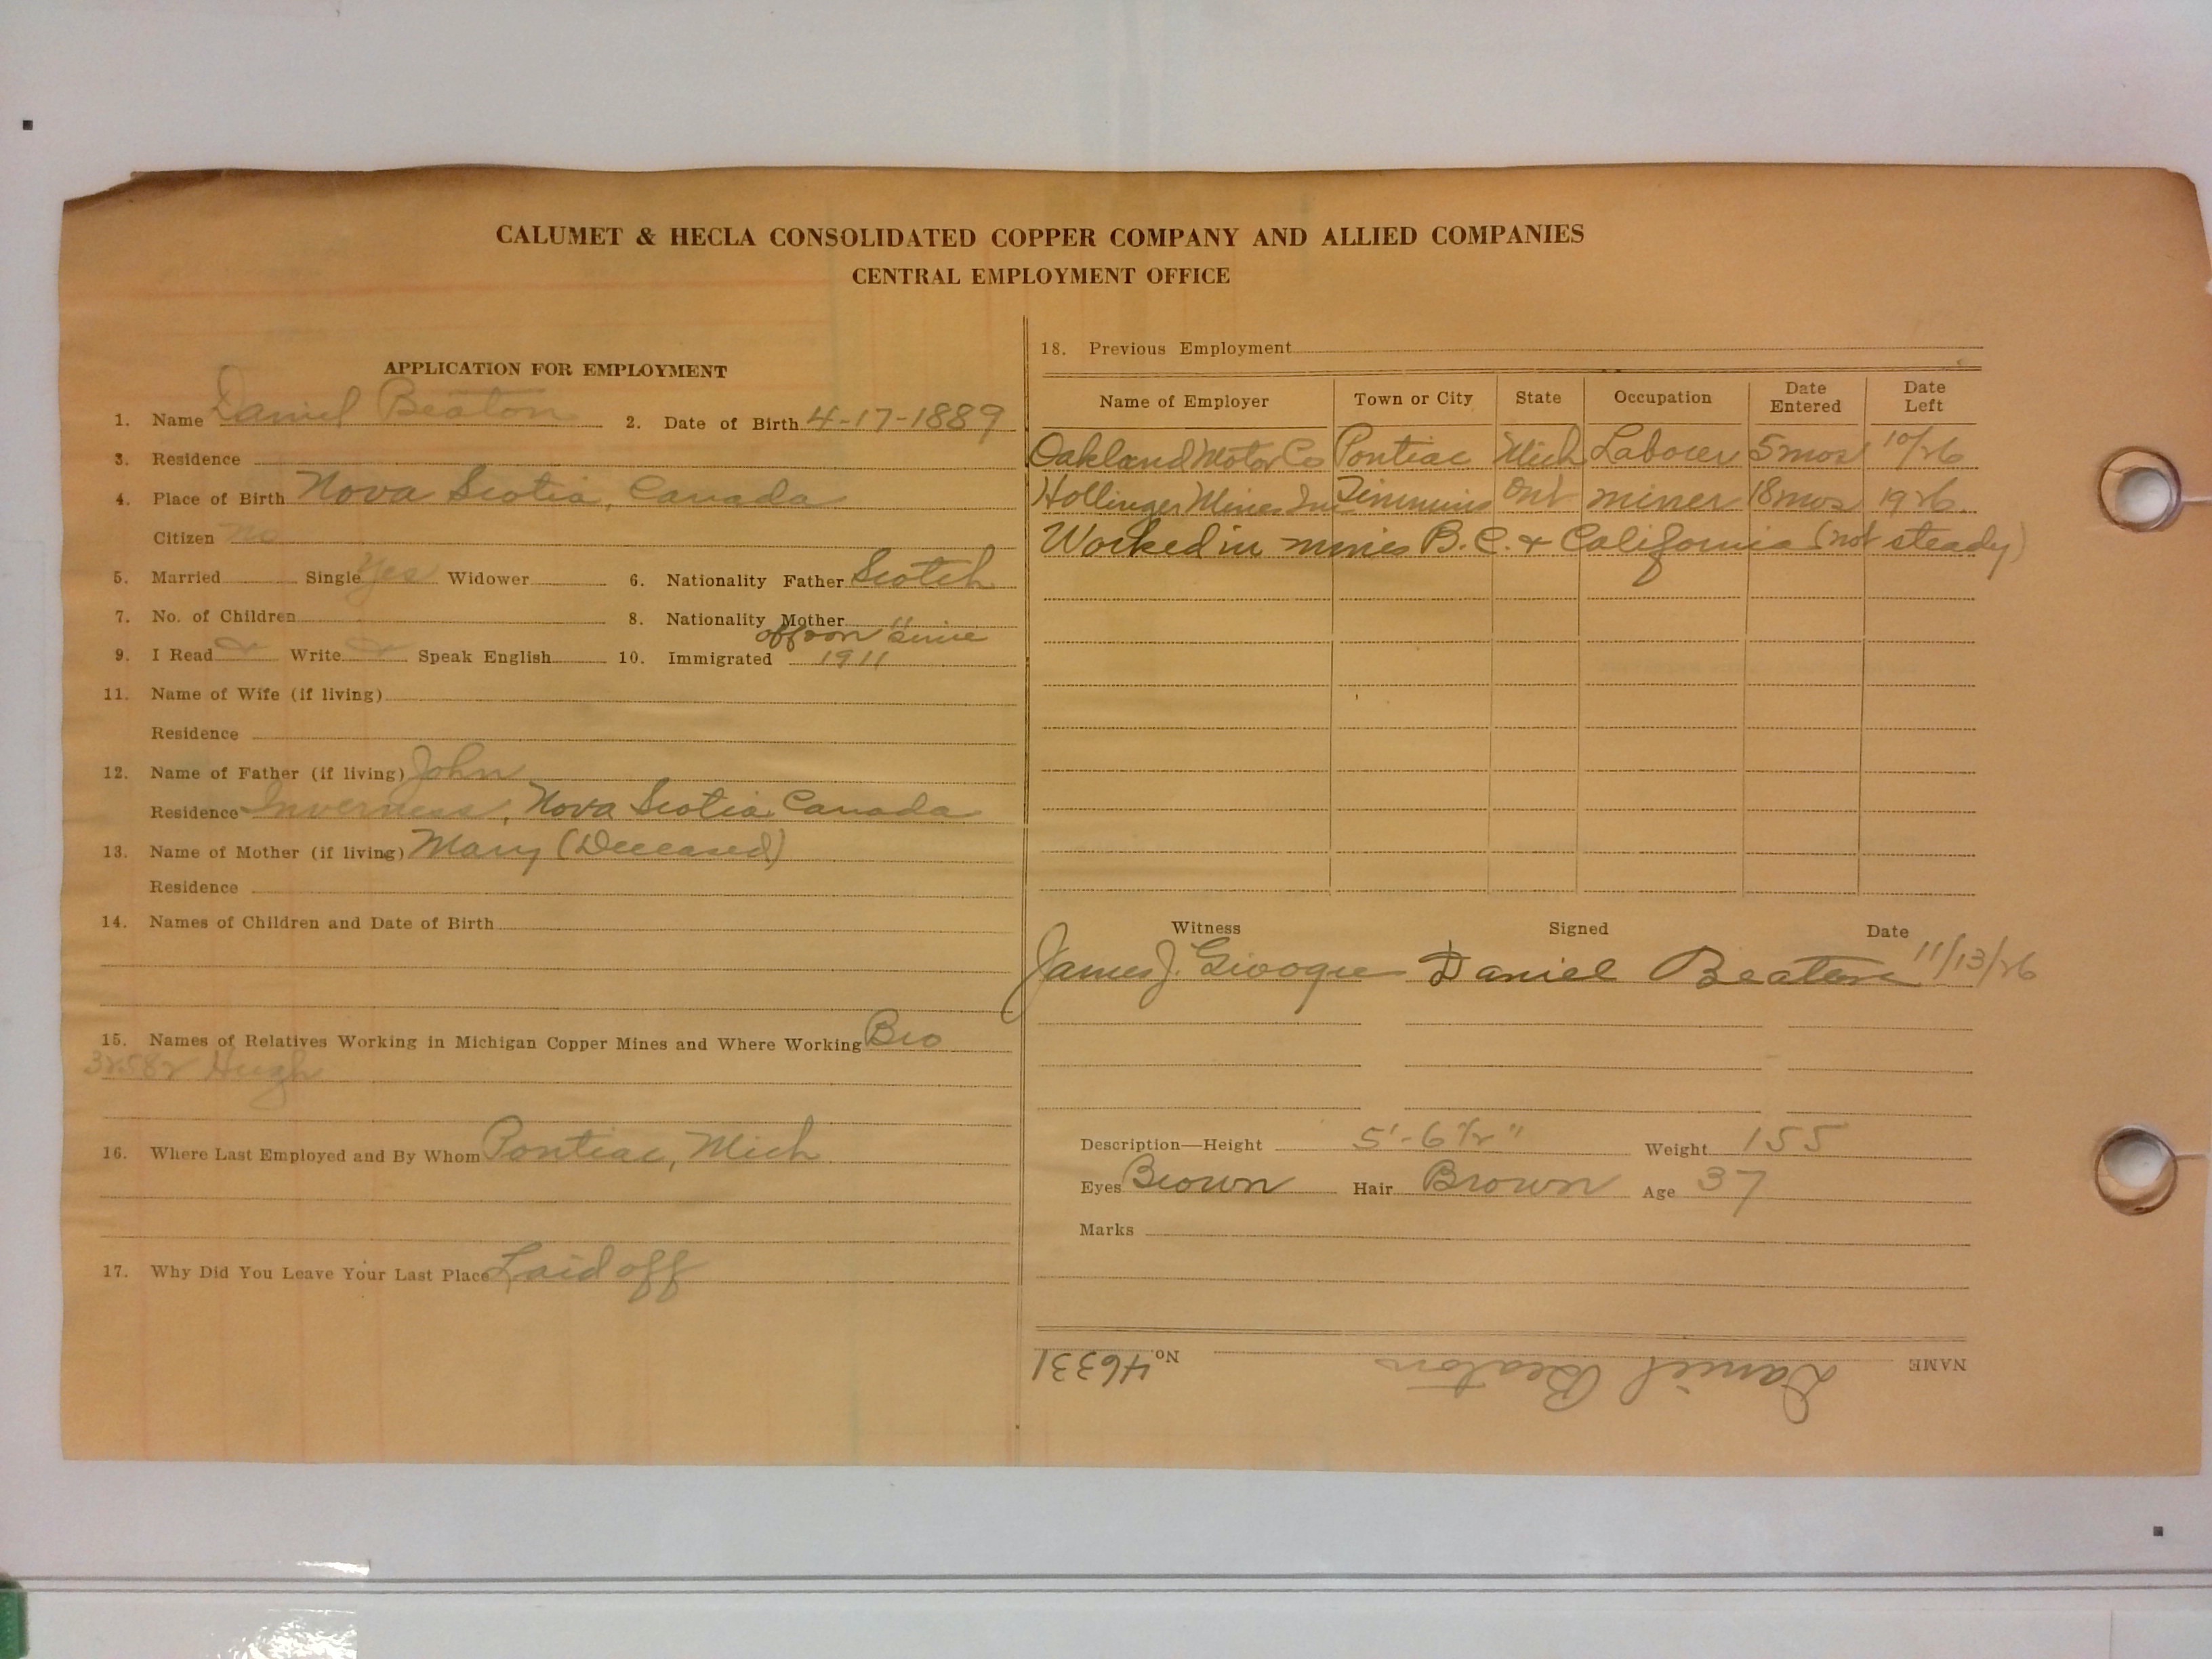 CALUMET & HECLA CONSOLIDATED COPPER COMPANY AND ALLIED COMPANIES
CENTRAL EMPLOYMENT OFFICE
APPLICATION FOR EMPLOYMENT
1. Name Daniel Beaton 2. Date of Birth 4-17-1889
3. Residence
4. Place of Birth Nova Scotia, Canada
Citizen No
5. Married Single Yes Widower 6. Nationality Father Scotch
7. No. of Children 8. Nationality Mother "
off & on since
9. I Read Write Speak English 10. Immigrated 1911
11. Name of Wife (if living)
Residence
12. Name of Father (if living) John
Residence Inverness, Nova Scotia, Canada
13. Name of Mother (if living) Mary (Deceased)
Residence
14. Names of Children and Date of Birth
15. Names of Relatives Working in Michigan Copper Mines and Where Working Bro
32582 Hugh
16. Where Last Employed and By Whom Pontiac, Mich
17. Why Did You Leave Your Last Place Laid off
18. Previous Employment
Name of Employer Town or City State Occupation Date Entered Date Left
Oakland Motor Co Pontiac Mich Laborer 5 mos 10/26
Hollinger Mines Timmins Ont miner 18 mos 1926
Worked in mines B.C. & California (not steady)
Witness Signed Date
James J. Daniel Beaton 11/13/26
Description—Height 5'-6 1/2" Weight 155
Eyes Brown Hair Brown Age 37
Marks
NAME Daniel Beaton No. 46331